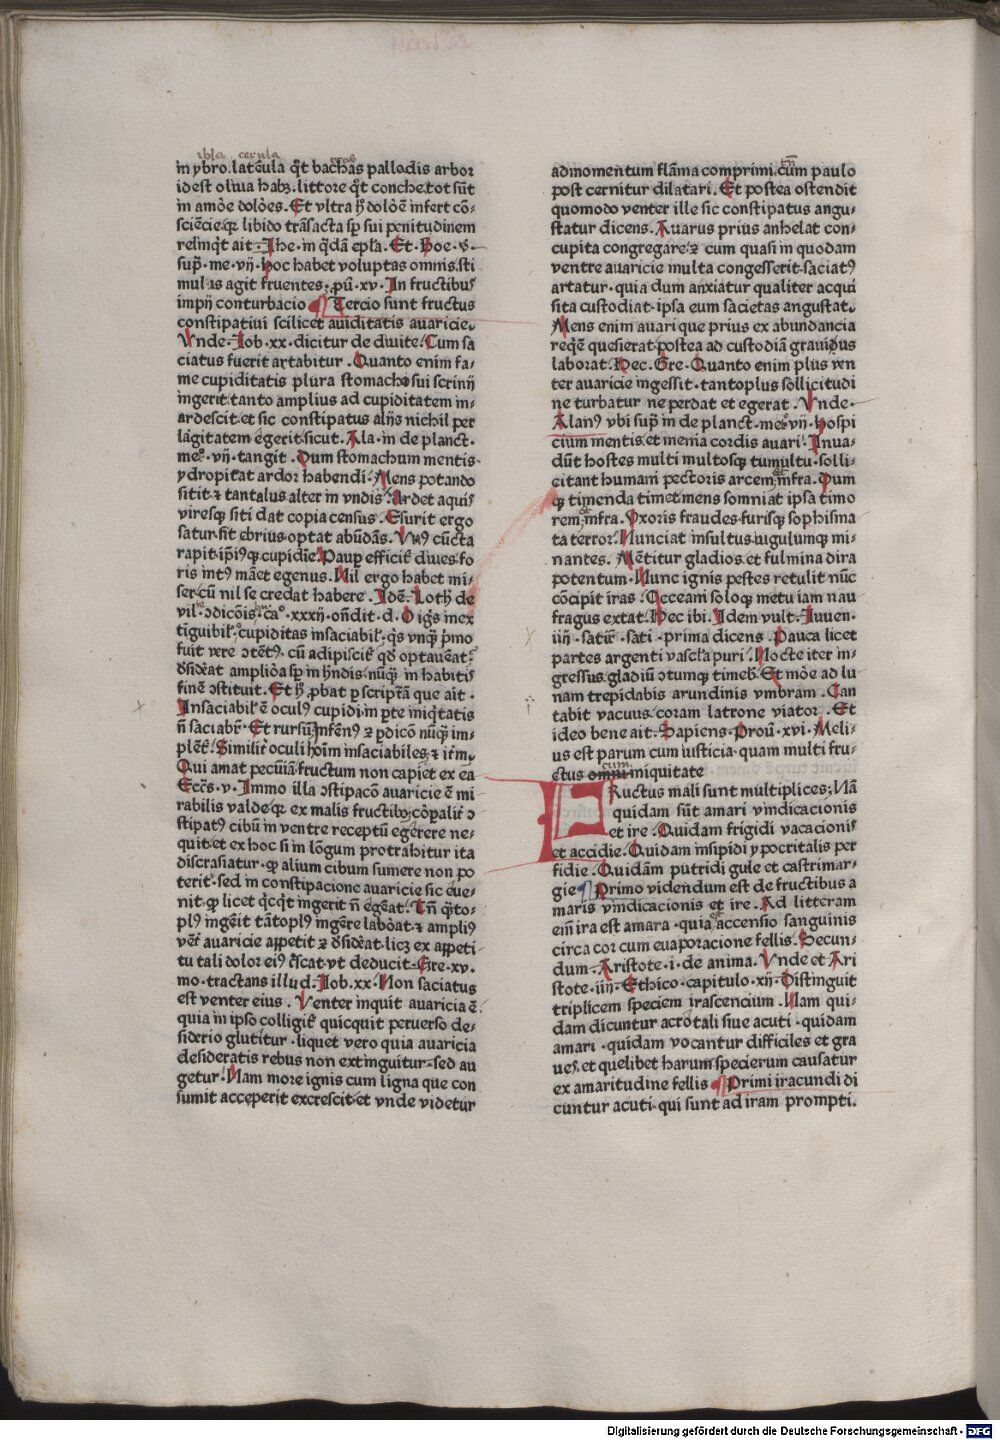 ibla cerula
in ybro. latēula q̄t bachas palladis arbor
id est oliua habꝫ. littore q̄t conche. tot sūt
in amōe dolōes. Et vltra hͦ dolōē infert cō⸗
sciēcie qꝫ libido trāsacta sꝑ sui penitudinem
relinq̄t ait. Ihe. in q̄dā epl'a. Et. Boe. v.
sup̄. me. vij. hoc habet voluptas omnis. sti
mulis agit fruentes. ꝓū. xv. In fructibus
impij conturbacio Tercio sunt fructus
constipatiui scilicet auiditatis auaricie.
Vnde. Iob. xx. dicitur de diuite. Cum sa
ciatus fuerit artabitur. Quanto enim fa⸗
me cupiditatis plura stomacho sui scrinij
ingerit. tanto amplius ad cupiditatem in⸗
ardescit. et sic constipatus alijs nichil per
largitatem egerit. sicut. Ala. in de planct.
meͦ. vij. tangit. Dum stomachum mentis
ydropicat ardor habendi. Mens potando
sitit. ⁊ tantalus alter in vndis. Ardet aquis
viresqꝫ siti dat copia census. Esurit ergo
satur. sit ebrius. optat abūdās. Vnꝰ cūcta
rapit. ip̄iꝰqꝫ cupidīe. Pauꝑ efficit' diues. fo
ris intꝰ māet egenus. Nil ergo habet mi⸗
ser. cū nil se credat habere. Idē. Loth. de
vil. ꝯdicōis. ca. xxxij. on̄dit. d. Ignis inex
tīguibil'. cupiditas insaciabil'. q̄s vnqꝫ p̄mo
fuit vere ꝯtētꝰ. cū adipiscit' qd̄ optaueat.
dsideat ampliōa sꝑ in hn̄dis. nūqꝫ in habitis
finē ꝯstituit. Et hͦ ꝓbat ꝑ scriptā que ait.
Insaciabil' ē oculꝰ cupidi. in ꝑte iniq̄tatis
n̄ saciabr̄. Et rursū. Infernꝰ ⁊ ꝑdicō nūqꝫ im⸗
plēt'. Similir̄ oculi hoīm insaciabiles. ⁊ itm̄.
Qui amat pecuīā. fructum non capiet ex ea
Eccs̄. v. Immo illa ꝯstipacō auaricie ē mi
rabilis valde. qꝫ ex malis fructibꝫ cōpalir̄ ꝯ
stipatꝰ cibū in ventre receptū egerere ne⸗
quit. et ex hoc si in lōgum protrahitur ita
discrasiatur. ꝙ alium cibum sumere non po
terit. sed in constipacione auaricie sic eue⸗
nit. ꝙ licet q̄cq̄t ingerit n̄ egeat. Tn̄ q̄to⸗
plꝰ ingēit tātoplꝰ ingēre labōat. ⁊ ampliꝰ
vēr auaricie appetit ⁊ dsideat. licꝫ ex appeti
tu tali dolor eiꝰ c̄scat. vt deducit. Gre. xv.
mo. tractans illud. Iob. xx. Non saciatus
est venter eius. Venter inquit auaricia ē.
quia in ipso colligit' quicquit peruerso de⸗
siderio glutitur. liquet vero quia auaricia
desideratis rebus non extinguitur. sed au
getur. Nam more ignis cum ligna que con
sumit acceperit excrescit. et vnde videtur
ad momentum flāma comprimi. cum paulo
post cernitur dilatari. Et postea ostendit
quomodo venter ille sic constipatus angu⸗
statur dicens. Auarus prius anhelat con⸗
cupita congregare. ⁊ cum quasi in quodam
ventre auaricie multa congesserit. saciatꝰ
artatur. quia dum anxiatur qualiter acqui
sita custodiat. ipsa eum sacietas angustat.
Mens enim auari que prius ex abundancia
reqēē quesierat. postea ad custodiā grauibus
laborat. Hec. Gre. Quanto enim plus ven
ter auaricie ingessit. tantoplus sollicitudi
ne turbatur ne perdat et egerat. Vnde.
Alanꝰ vbi sup̄ in de planct. meͦ. vij. Hospi
cium mentis. et menia cordis auari. Inua⸗
dūt hostes multi multosqꝫ tumultu. solli⸗
citant humani pectoris arcem. infra. Dum
qꝫ timenda timet mens somniat ipsa timo
rem. infra. Vxoris fraudes. furisqꝫ sophisma
ta terror. Nunciat insultus iugulumqꝫ mi⸗
nantes. Mētitur gladios et fulmina dira
potentum. Nunc ignis pestes retulit nūc
cōcipit iras. Oceeam soloqꝫ metu iam nau
fragus extat. Hec ibi. Idem vult. Iuuen.
iiij. satir̄. sati. prima dicens. Pauca licet
partes argenti vascl'a puri. Nocte iter in⸗
gressus. gladiū ꝯtumqꝫ timeb'. Et mōe ad lu
nam trepidabis arundinis vmbram. Can
tabit vacuus coram latrone viator. Et
ideo bene ait. Sapiens. Prou. xvi. Meli⸗
us est parum cum iusticia. quam multi fru⸗
cum
ctus omni iniquitate
FRuctus mali sunt multiplices; Nā
quidam sūt amari vindicacionis
et ire. Quidam frigidi vacacionis
et accidie. Quidam insipidi ypocritalis per
fidie. Quidam putridi gule et castrimar⸗
gie Primo videndum est de fructibus a
maris vindicacionis et ire. Ad litteram
em̄ ira est amara. quia est accensio sanguinis
circa cor cum euaporacione fellis. Secun⸗
dum. Aristote. i. de anima. Vnde et Ari
stote. iiij. Ethico. capitulo. xij. Distinguit
triplicem speciem irascencium. Nam qui⸗
dam dicuntur acrotali siue acuti. quidam
amari. quidam vocantur difficiles et gra
ues. et quelibet harum specierum causatur
ex amaritudine fellis Primi iracundi di
cuntur acuti. qui sunt ad iram prompti.
Digitalisierung gefördert durch die Deutsche Forschungsgemeinschaft - DFG